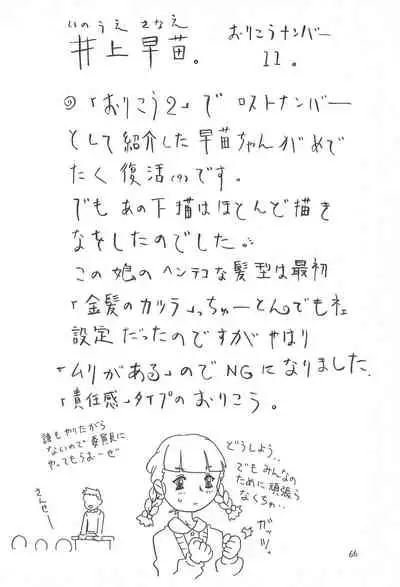 いのうえ さなえ
井上早苗。
おりこうナンバー
11。
「おりこう2」でロストナンバー
として紹介した早苗ちゃんがめで
たく復活(?)です。
でもあの下描はほとんど描き
なをしたのでした。
この娘のヘンテコな髪型は最初
「金髪のカツラ」っちゅーとんでもネェ
設定だったのですがやはり
「ムリがある」のでNGになりました。
「責任感」タイプのおりこう。
誰もやりたがら
ないので委員長に
やってもらおーぜ
さんせー
どうしよう..
でもみんなの
ために頑張ら
なくちゃ...
ガッツ。
66